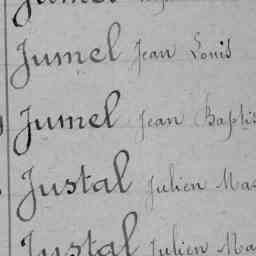 Jumel
Jumel Jean Louis
Jumel Jean Baptis
Justal Julien Mas
Justal Julien Ma